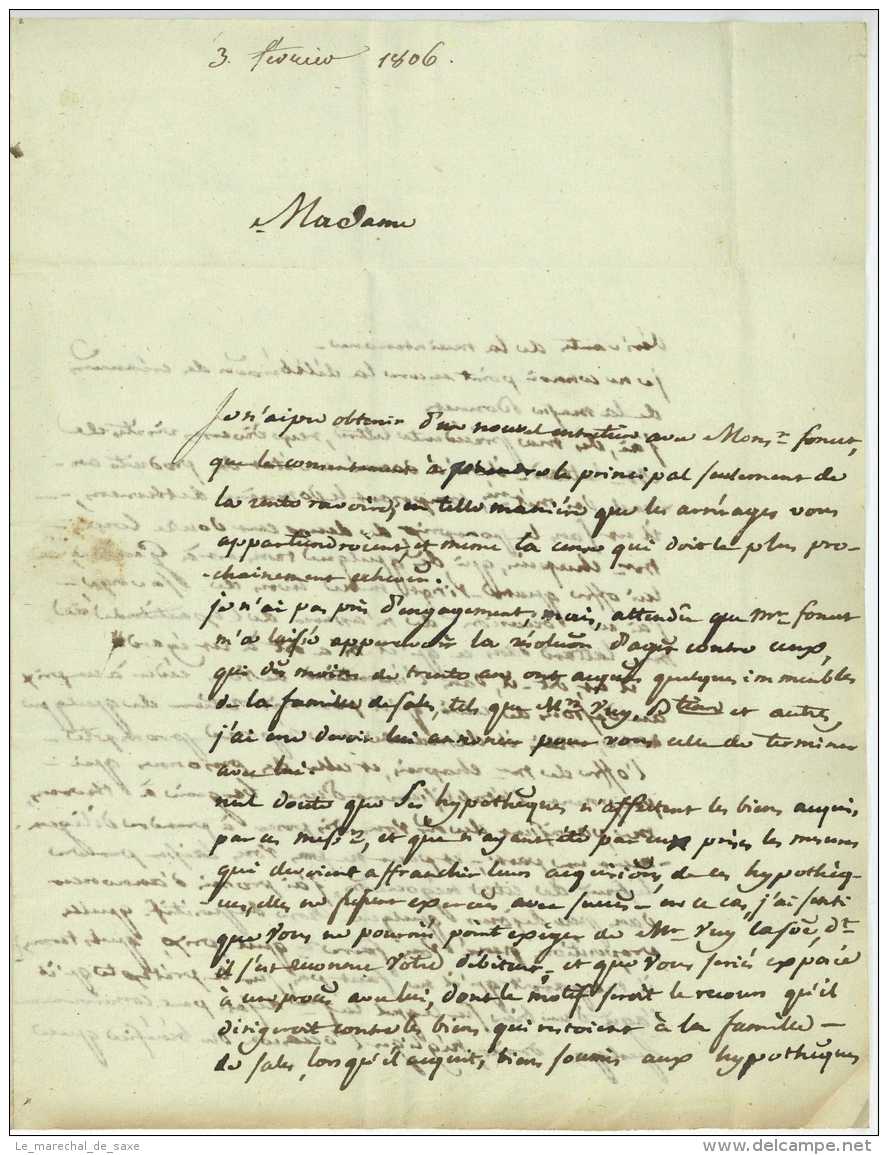 3. fevrier 1806.
Madame
Je n'ai pu obtenir d'un nouvel entretien avec Monsr. foncet,
que le consentement à prendre le principal seulement de
la rente ravoire, en telle manière que les arrérages vous
appartiendroient, et même la cense qui doit le plus pro-
-chainement echeoir.
je n'ai pas pris d'engagement, mais, attendû que Mr. foncet
m'a laissé appercevoir la résolution d'agir contre ceux,
qui dès moins de trente ans ont acquis quelques immeubles
de la famille de sales, tels que Mrs. Vuy, et autres,
j'ai cru devoir lui annoncer pour vous celle de terminer
avec lui.
nul doute que ses hypothèques n'affectent les biens acquis,
par ces messrs, et que n'ayant été par eux prises les mesures
qui devoient affranchir leurs acquisions, de ces hypothèq-
ues, elles ne fussent exercées avec succès - en ce cas, j'ai senti
que Vous ne pourriés point exiger de Mr. Vuy la soe, dt.
il s'est reconnu Votre débiteur, et que vous seriés exposée
à un procès avec lui, dont le motif seroit le recours qu'il
dirigeroit contre les biens qui restoient à la famille -
de sales, lorsqu'il acquit, biens soumis aux hypothèques
Le_marechal_de_saxe
www.delcampe.net